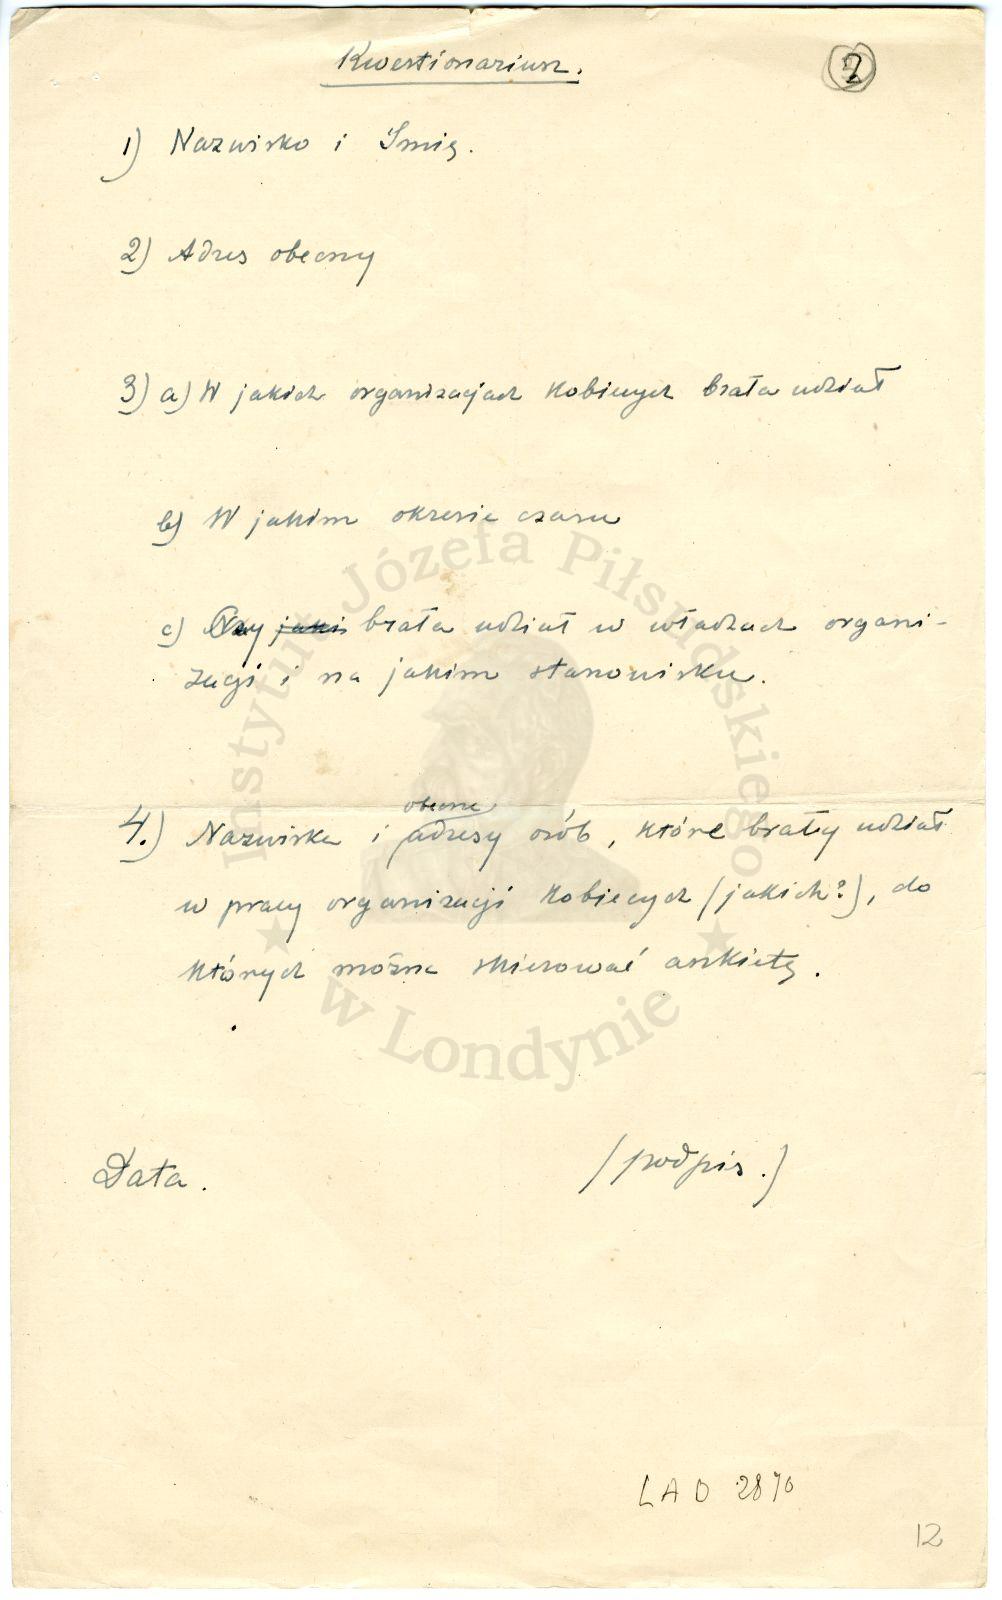 Kwestionariusz.
2
1) Nazwisko i Imię.
2) Adres obecny
3) a) W jakich organizacjach kobiecych brała udział
b) W jakim okresie czasu
c) Czy jakiś brała udział w władzach organi-
zacji i na jakim stanowisku.
obecne
4.) Nazwiska i adresy osób, które brały udział
w pracy organizacji kobiecych (jakich?), do
których można skierować ankietę.
Data.
(podpis.)
LAD 2870
12
Instytut Józefa Piłsudskiego
w Londynie